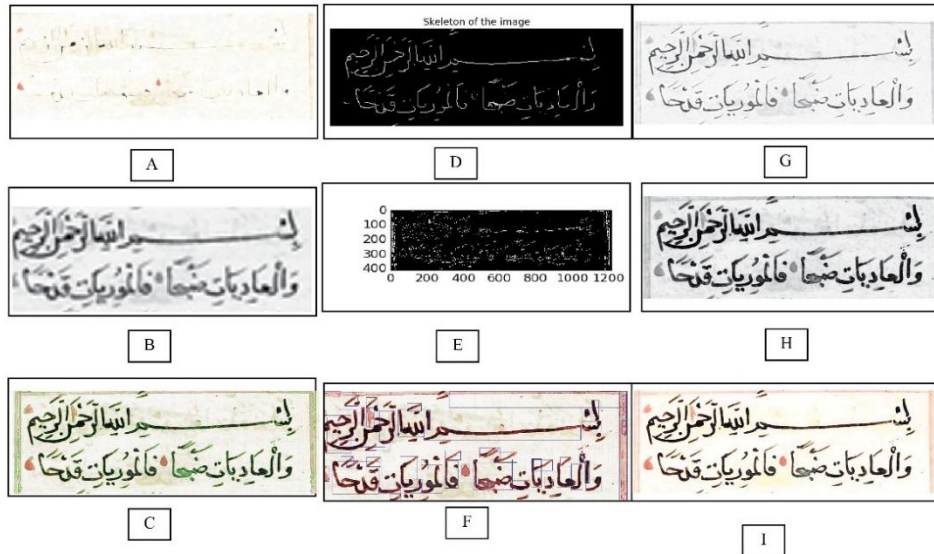 A
Skeleton of the image
بِسْمِ اللهِ الرَّحْمٰنِ الرَّحِيمِ
وَالْعَادِيَاتِ ضَبْحًا فَالْمُورِيَاتِ قَدْحًا
D
بِسْمِ اللهِ الرَّحْمٰنِ الرَّحِيمِ
وَالْعَادِيَاتِ ضَبْحًا فَالْمُورِيَاتِ قَدْحًا
G
بِسْمِ اللهِ الرَّحْمٰنِ الرَّحِيمِ
وَالْعَادِيَاتِ ضَبْحًا فَالْمُورِيَاتِ قَدْحًا
B
0
100
200
300
400
0 200 400 600 800 1000 1200
E
بِسْمِ اللهِ الرَّحْمٰنِ الرَّحِيمِ
وَالْعَادِيَاتِ ضَبْحًا فَالْمُورِيَاتِ قَدْحًا
H
بِسْمِ اللهِ الرَّحْمٰنِ الرَّحِيمِ
وَالْعَادِيَاتِ ضَبْحًا فَالْمُورِيَاتِ قَدْحًا
C
بِسْمِ اللهِ الرَّحْمٰنِ الرَّحِيمِ
وَالْعَادِيَاتِ ضَبْحًا فَالْمُورِيَاتِ قَدْحًا
F
بِسْمِ اللهِ الرَّحْمٰنِ الرَّحِيمِ
وَالْعَادِيَاتِ ضَبْحًا فَالْمُورِيَاتِ قَدْحًا
I